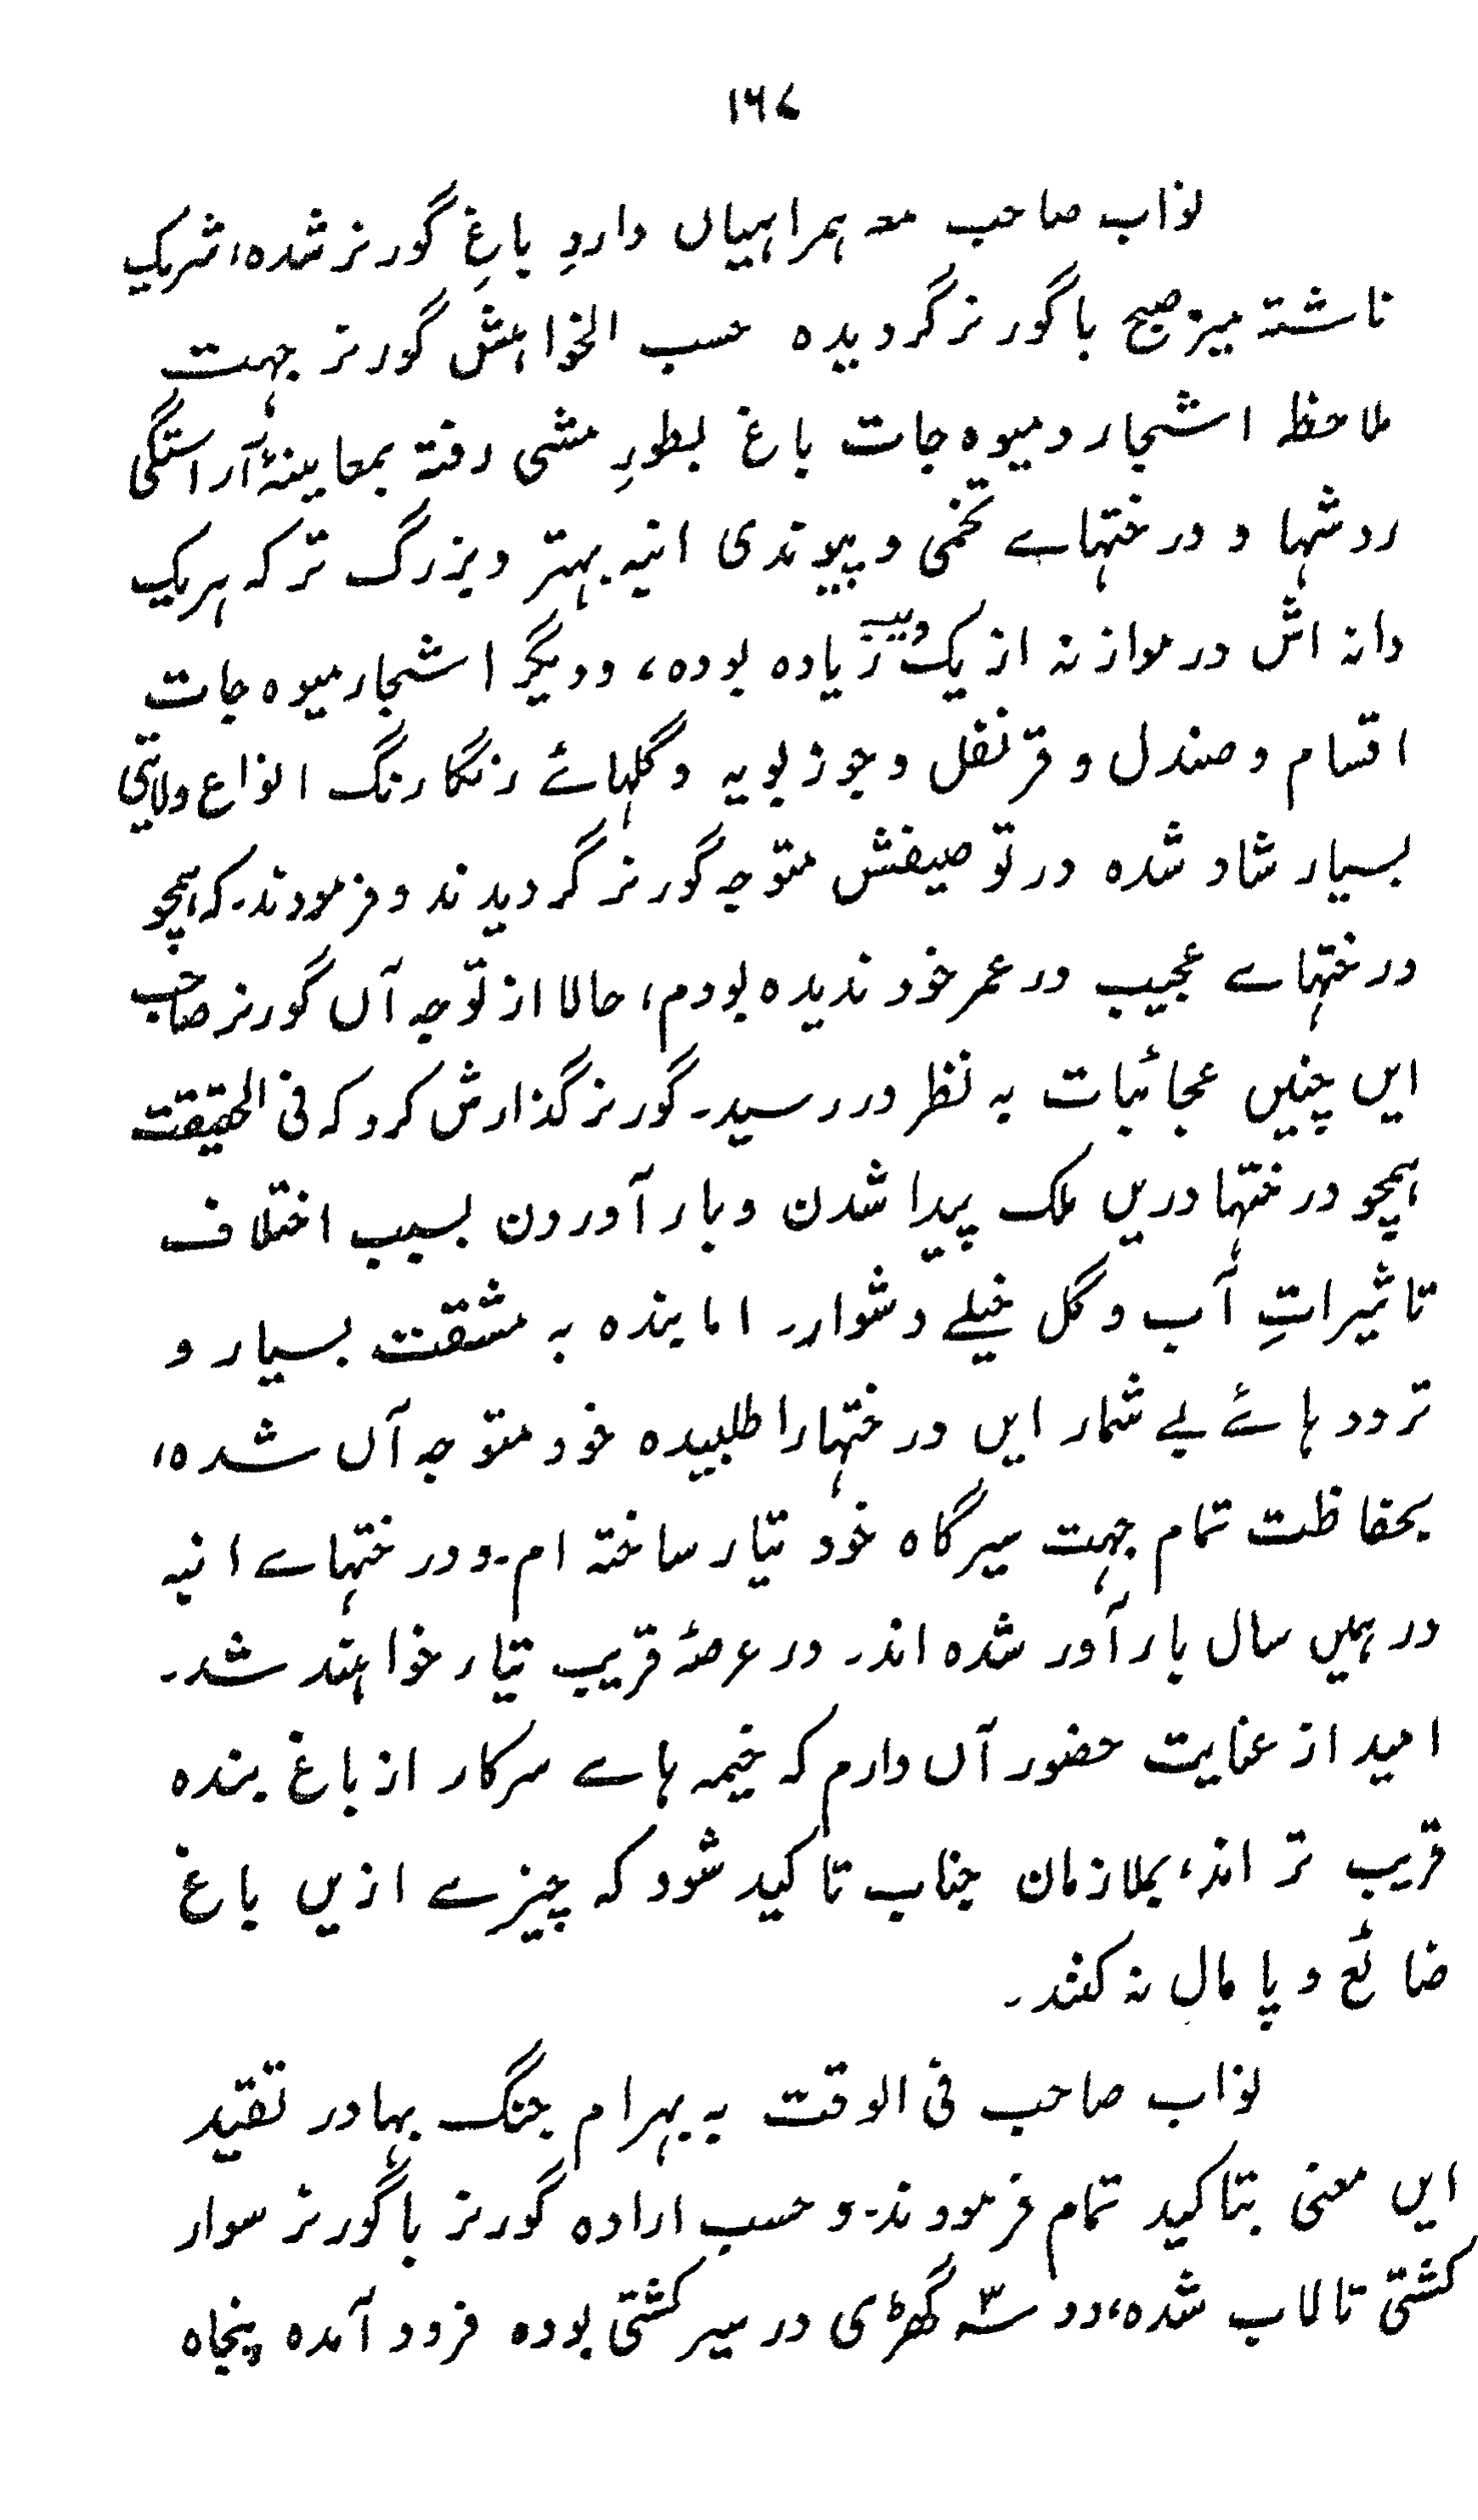 ۱۶۷
نواب صاحب معہ ہمراہیاں واردِ باغِ گورنر شدہ، شریک
ناشتۃ میز صبح باگورنر گردیدہ حسب الخواہش گورنر جہت
ملاحظہ اشجار و میوہ جات باغ بطورِ مشی رفتہ بمعاینۂ آراستگی
روشہا و درختہاے تخمی و پیوندی انبہ بہتر و بزرگ تر کہ ہریک
دانہ اش در موازنہ از یک زیادہ بودہ، و دیگر اشجار میوہ جات
اقسام و صندل و قرنفل و جوزبویہ و گلہائے رنگارنگ انواع ولایتی
بسیار شاد شدہ در توصیفش متوجہ گورنر گردیدند و فرمودند۔ کہ ہمچو
درختہاے عجیب در عمر خود ندیدہ بودم، حالا از توجہ آں گورنر صاحب
ایں چنیں عجائبات بہ نظر در رسید۔ گورنر گذارش کرد کہ فی الحقیقت
ہمچو درختہا دریں ملک پیدا شدن و بار آوردن بسبب اختلاف
تاثیراتِ آب و گل خیلے دشوار۔ اما بندہ بہ مشقت بسیار و
تردد ہائے بے شمار ایں درختہا را طلبیدہ خود متوجہ آں شدہ،
بحفاظت تمام جہت سیر گاہ خود تیار ساختہ ام۔ و درختہاے انبہ
در ہمیں سال بار آور شدہ اند۔ در عرصۂ قریب تیار خواہند شد۔
امید از عنایت حضور آں دارم کہ خیمہ ہاے سرکار از باغ بندہ
قریب تر اند، بملازمان جناب تاکید شود کہ چیزے ازیں باغ
ضائع و پامال نہ کنند۔
نواب صاحب فی الوقت بہ بہرام جنگ بہادر تقید
ایں معنی بتاکید تمام فرمودند۔ و حسب ارادہ گورنر باگورنر سوار
کشتی تالاب شدہ، دو سہ گھڑی در سیر کشتی بودہ فرود آمدہ پنجاہ